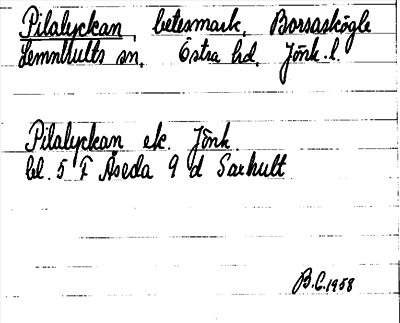 Pilalyckan, betesmark, Borsaskögle
Lemnhults sn, Östra hd, Jönk. l.
Pilalyckan ek. Jönk.
bl. 5 F Åseda 9 d Sarhult
B.C. 1958